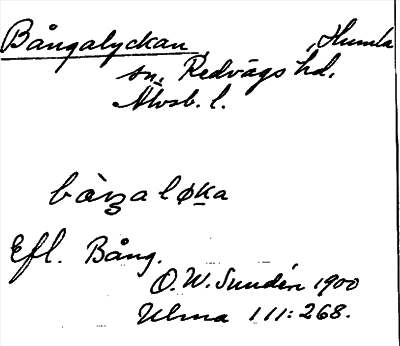 Bångalyckan, Humla
sn, Redvägs hd.
Älvsb. l.
bàŋaløka
Efl. Bång.
O.W. Sundén 1900
Ulma 111:268.